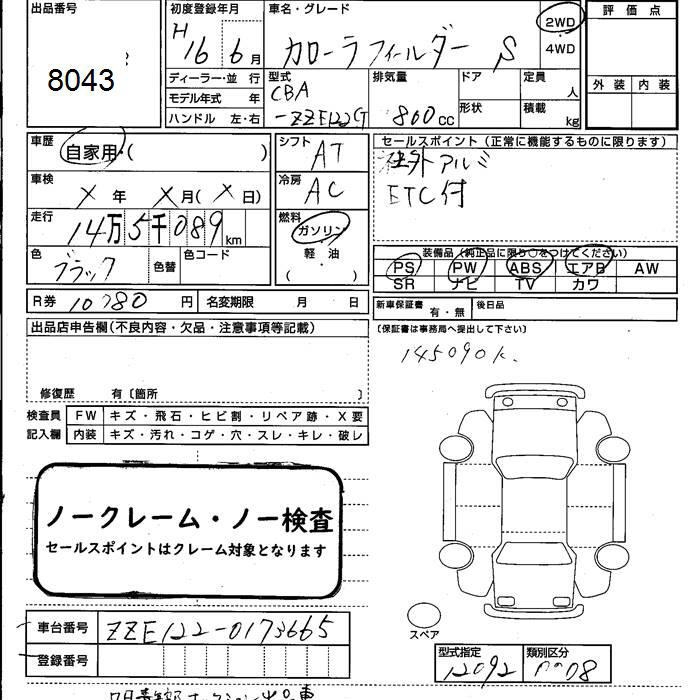 出品番号
8043
初度登録年月
H16 6月
車名・グレード
カローラフィールダー S
2WD
4WD
評価点
外装 内装
ディーラー・並 行
モデル年式 年
ハンドル 左・右
型式
CBA
-ZZE122G
排気量
1800cc
ドア
形状
定員
人
積載
kg
車歴
自家用・( )
シフト
AT
セールスポイント(正常に機能するものに限ります)
社外アルミ
ETC付
車検
X 年 X 月(X 日)
冷房
AC
走行
14万5千089km
燃料
ガソリン
軽・油
( )
色
ブラック
色替
色コード
装備品(純正品に限り○をつけてください)
PS PW ABS エアB AW
SR ナビ TV カワ
R券 10780 円
名変期限 月 日
新車保証書
有・無
後日品
(保証書は事務局へ提出して下さい)
出品店申告欄(不良内容・欠品・注意事項等記載)
145090k.
修復歴 有〔箇所 〕
検査員
記入欄
FW キズ・飛石・ヒビ割・リペア跡・X要
内装 キズ・汚れ・コゲ・穴・スレ・キレ・破レ
ノークレーム・ノー検査
セールスポイントはクレーム対象となります
スペア
車台番号 ZZE122-0173665
登録番号
型式指定
12092
類別区分
0008